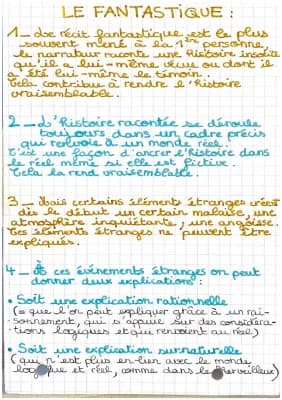 LE FANTASTIQUE :
1_ Le récit fantastique est le plus
souvent mené à la 1ère personne,
le narrateur raconte une histoire insolite
qu'il a lui-même vécue ou dont il
a été lui-même le témoin.
Cela contribue à rendre l'histoire
vraisemblable.
2_ L'histoire racontée se déroule
toujours dans un cadre précis
qui renvoie à un monde réel.
C'est une façon d'ancrer l'histoire dans
le réel même si elle est fictive.
Cela la rend vraisemblable.
3_ Mais certains éléments étranges créent
dès le début un certain malaise, une
atmosphère inquiétante, une angoisse.
Ces éléments étranges ne peuvent être
expliqués.
4_ À ces événements étranges on peut
donner deux explications :
• Soit une explication rationnelle
(= que l'on peut expliquer grâce à un rai-
sonnement, qui s'appuie sur des considéra-
tions logiques et qui renvoient au réel)
• Soit une explication surnaturelle
(qui n'est plus en lien avec le monde
logique et réel, comme dans le merveilleux)